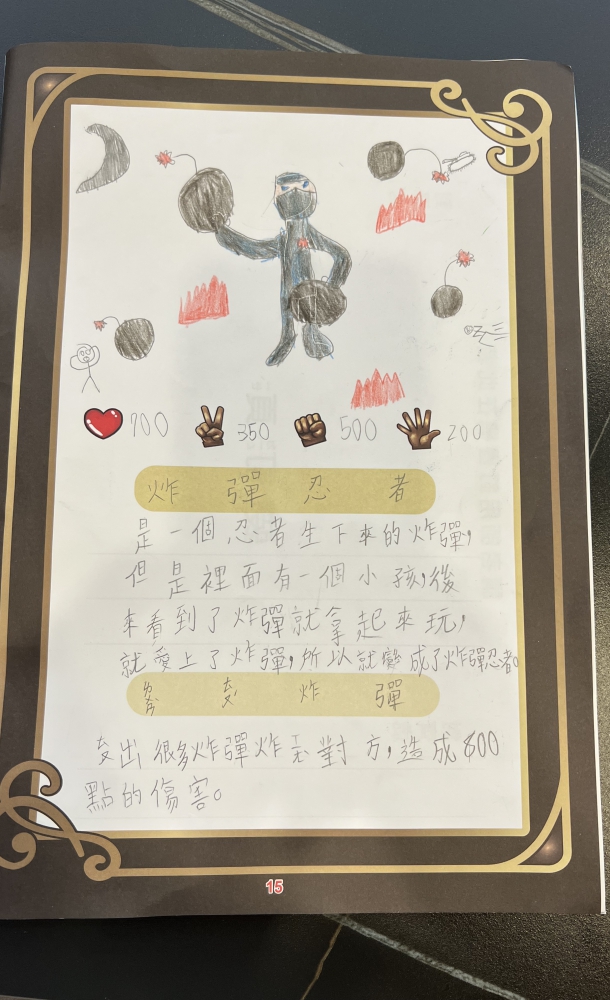 900 350 500 200
炸彈忍者
是一個忍者生下來的炸彈,
但是裡面有一個小孩,後
來看到了炸彈就拿起來玩,
就愛上了炸彈,所以就變成了炸彈忍者。
炸彈
出很多炸彈炸 對方,造成800
點的傷害。
15